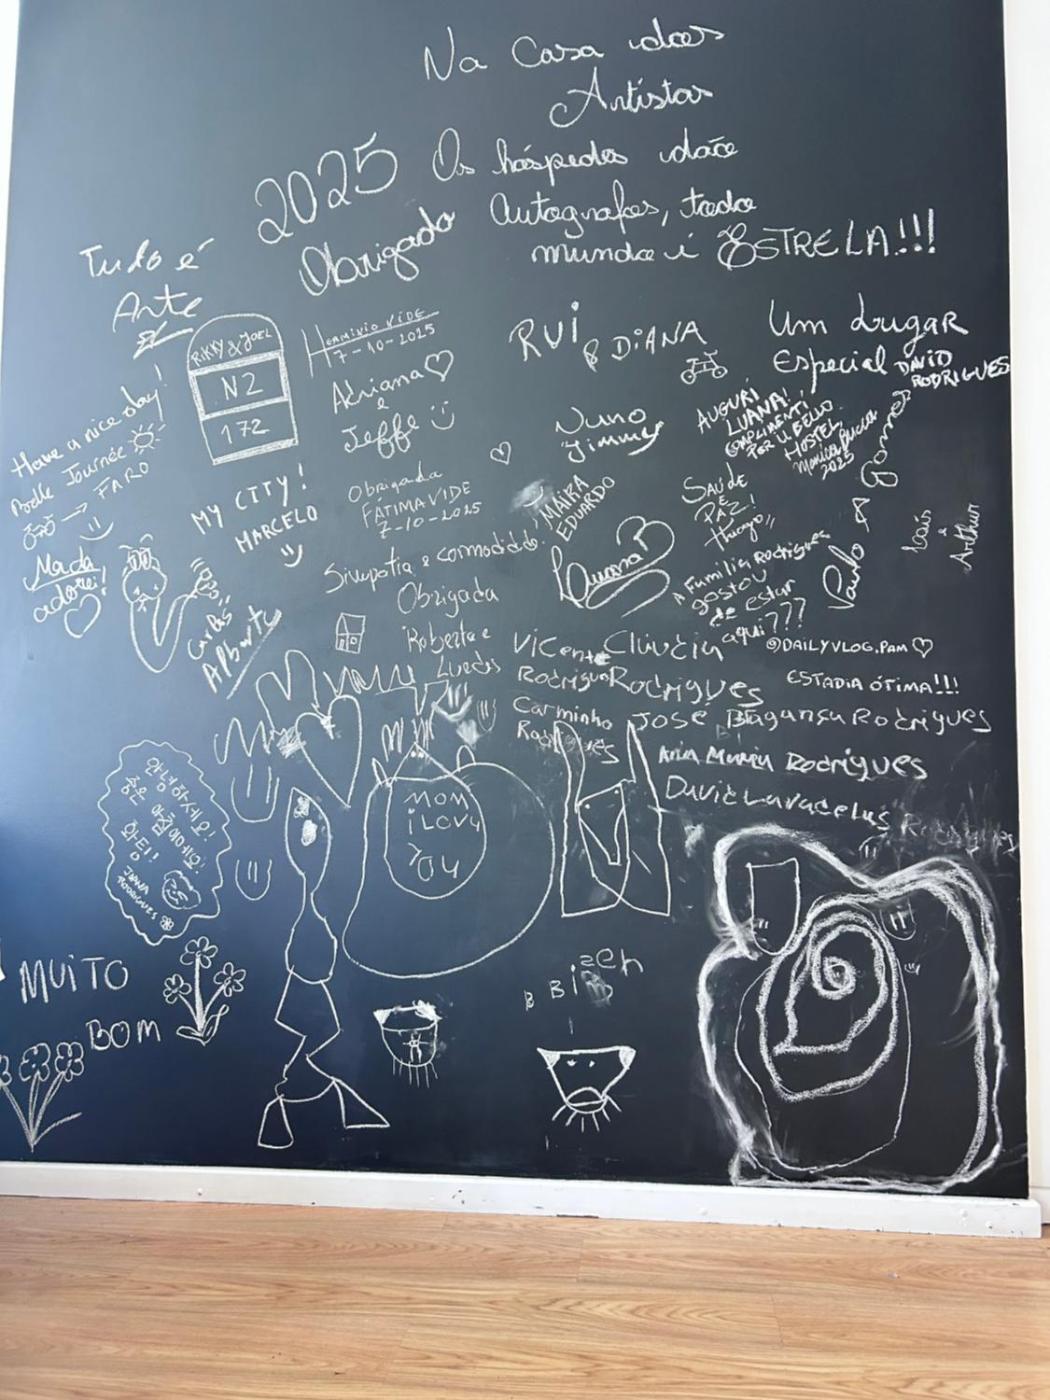 Na Casa dos
Artistas
2025
Os hóspedes dão
Autografos, todo
mundo é ESTRELA!!!
Obrigado
Tudo é
Arte
RIKKY & JOEL
N2
172
HERMINIO VIDE
7-10-2025
Adriana
e
Jeffe
RUI
& DIANA
Um Lugar
Especial
DAVID
RODRIGUES
Have a nice day!
Belle Journée
FARO
MY CITY!
MARCELO
Obrigada
FATIMA VIDE
7-10-2025
Nuno
Jimmy
AUGURI
LUANA!
COMPLIMENTI
PER IL BELLO
HOSTEL
2025
MAIRA
EDUARDO
SAÚDE
E
PAZ!
Thiago
Paulo
Lais
&
Arthur
Simpatia e comodidade.
Obrigada
Roberta e
Lucas
Carlos
Alberto
A Familia Rodrigues
gostou
de estar
aqui???
@DAILYVLOG.PAM
ESTADIA ÓTIMA!!!
Vicente
Rodrigues
Rodrigues
Carminho
Rodrigues
José Bragança Rodrigues
Ana Maria Rodrigues
안녕하세요!
좋은 아침이에요!
화팅!
JOANA
RODRIGUES
MOM
iLOVU
YOU
MUITO
BOM